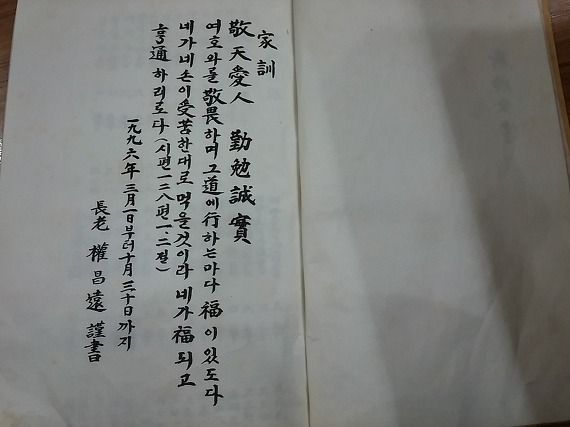 家訓
敬天愛人 勤勉誠實
여호와를 敬畏하며 그 道에 行하는마다 福이 있도다
네가 네 손이 受苦한대로 먹을것이라 네가 福되고
亨通하리로다 (시편 一二八편 一、二절)
一九九六年 三月一日부터 十月 三十日까지
長老 權昌遠 謹書